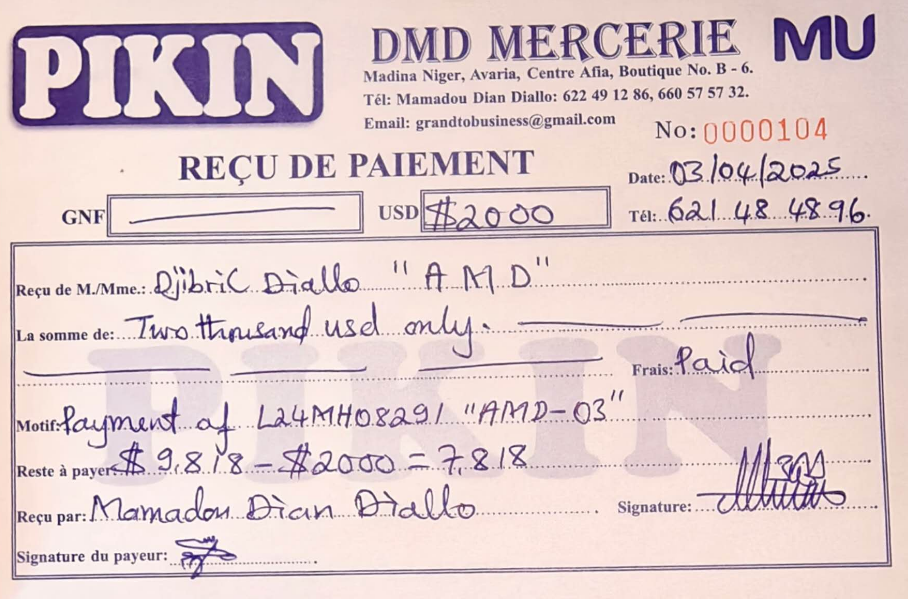 PIKIN
DMD MERCERIE
MU
Madina Niger, Avaria, Centre Afia, Boutique No. B - 6.
Tél: Mamadou Dian Diallo: 622 49 12 86, 660 57 57 32.
Email: grandtobusiness@gmail.com
No: 0000104
REÇU DE PAIEMENT
Date: 03/04/2025
GNF
USD $2000
Tél: 621 48 48 96.
Reçu de M./Mme.: Djibril Diallo "AMD"
La somme de: Two thousand usd only.
Frais: Paid
PIKIN
Motif: Payment of L24MH08291 "AMD-03"
Reste à payer: $ 9.818 - $2000 = 7.818
Reçu par: Mamadou Dian Diallo
Signature:
Signature du payeur: